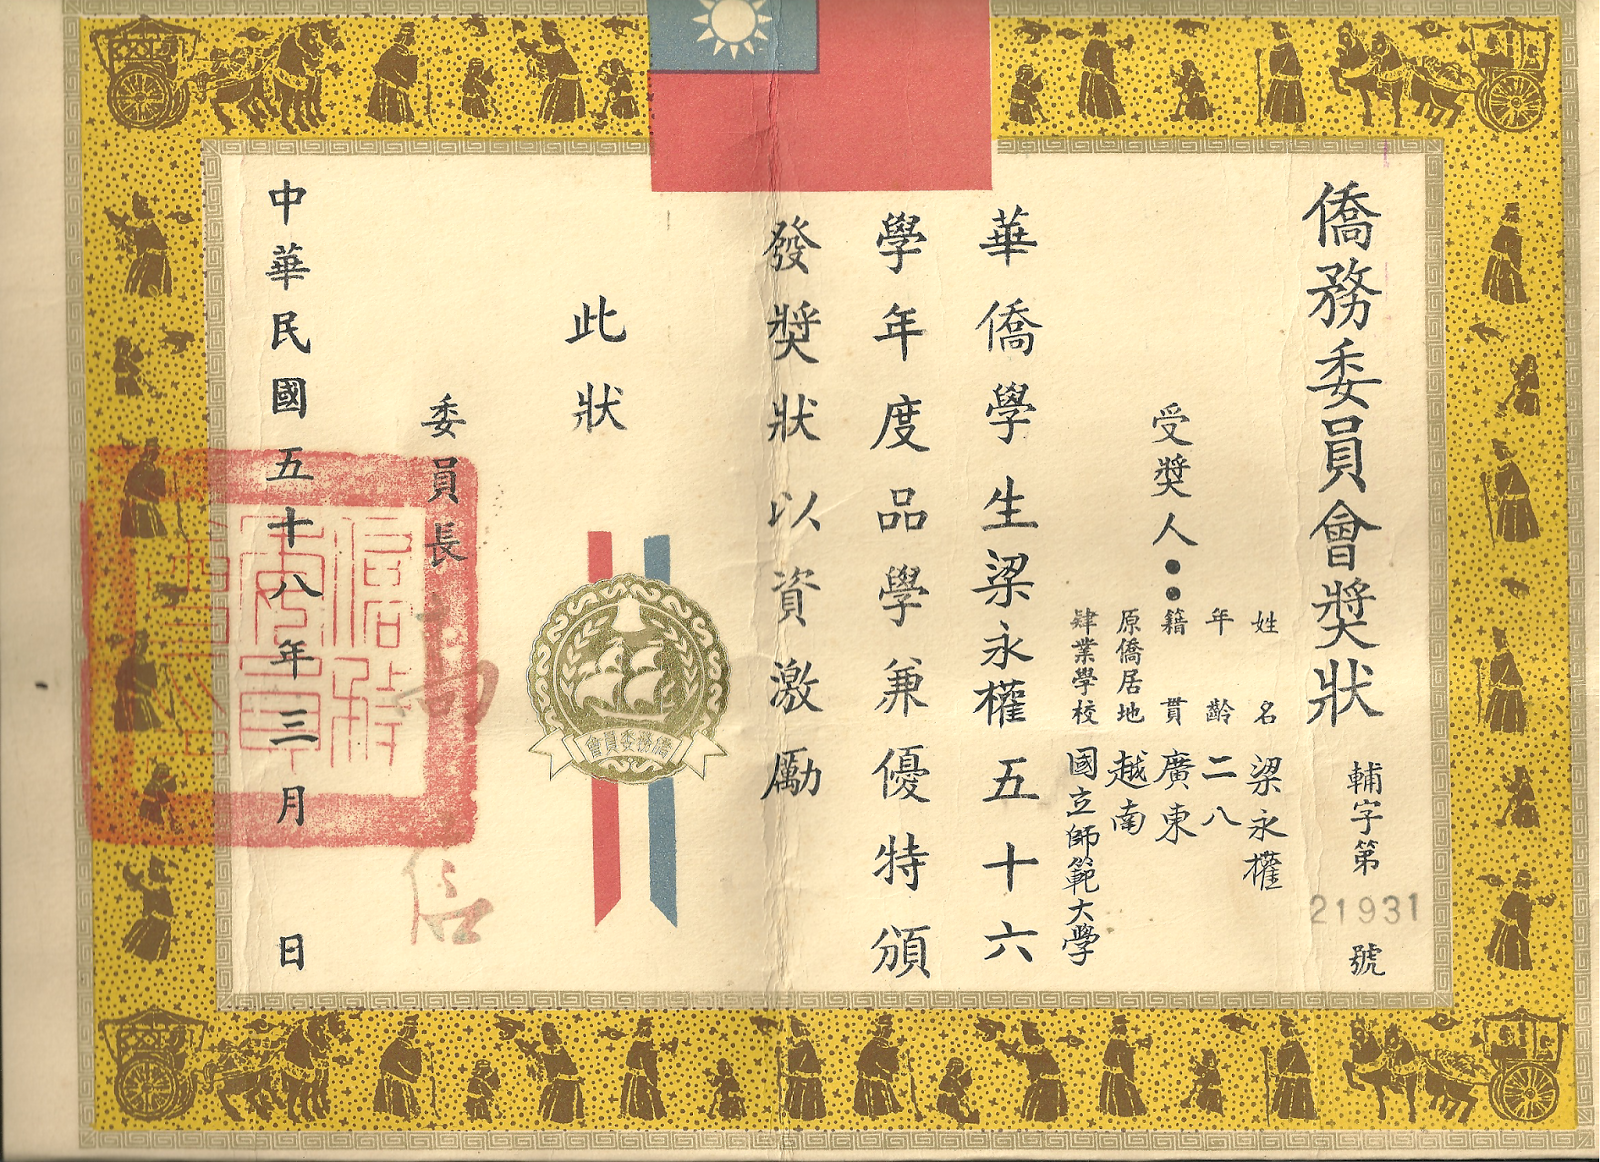 僑務委員會奬狀
輔字第21931號
受奬人：
姓名 梁永權
年齡 二八
籍貫 廣東
原僑居地 越南
肄業學校 國立師範大學
華僑學生梁永權五十六
學年度品學兼優特頒
發奬狀以資激勵
此狀
僑務委員會
委員長 高信
中華民國五十八年三月 日